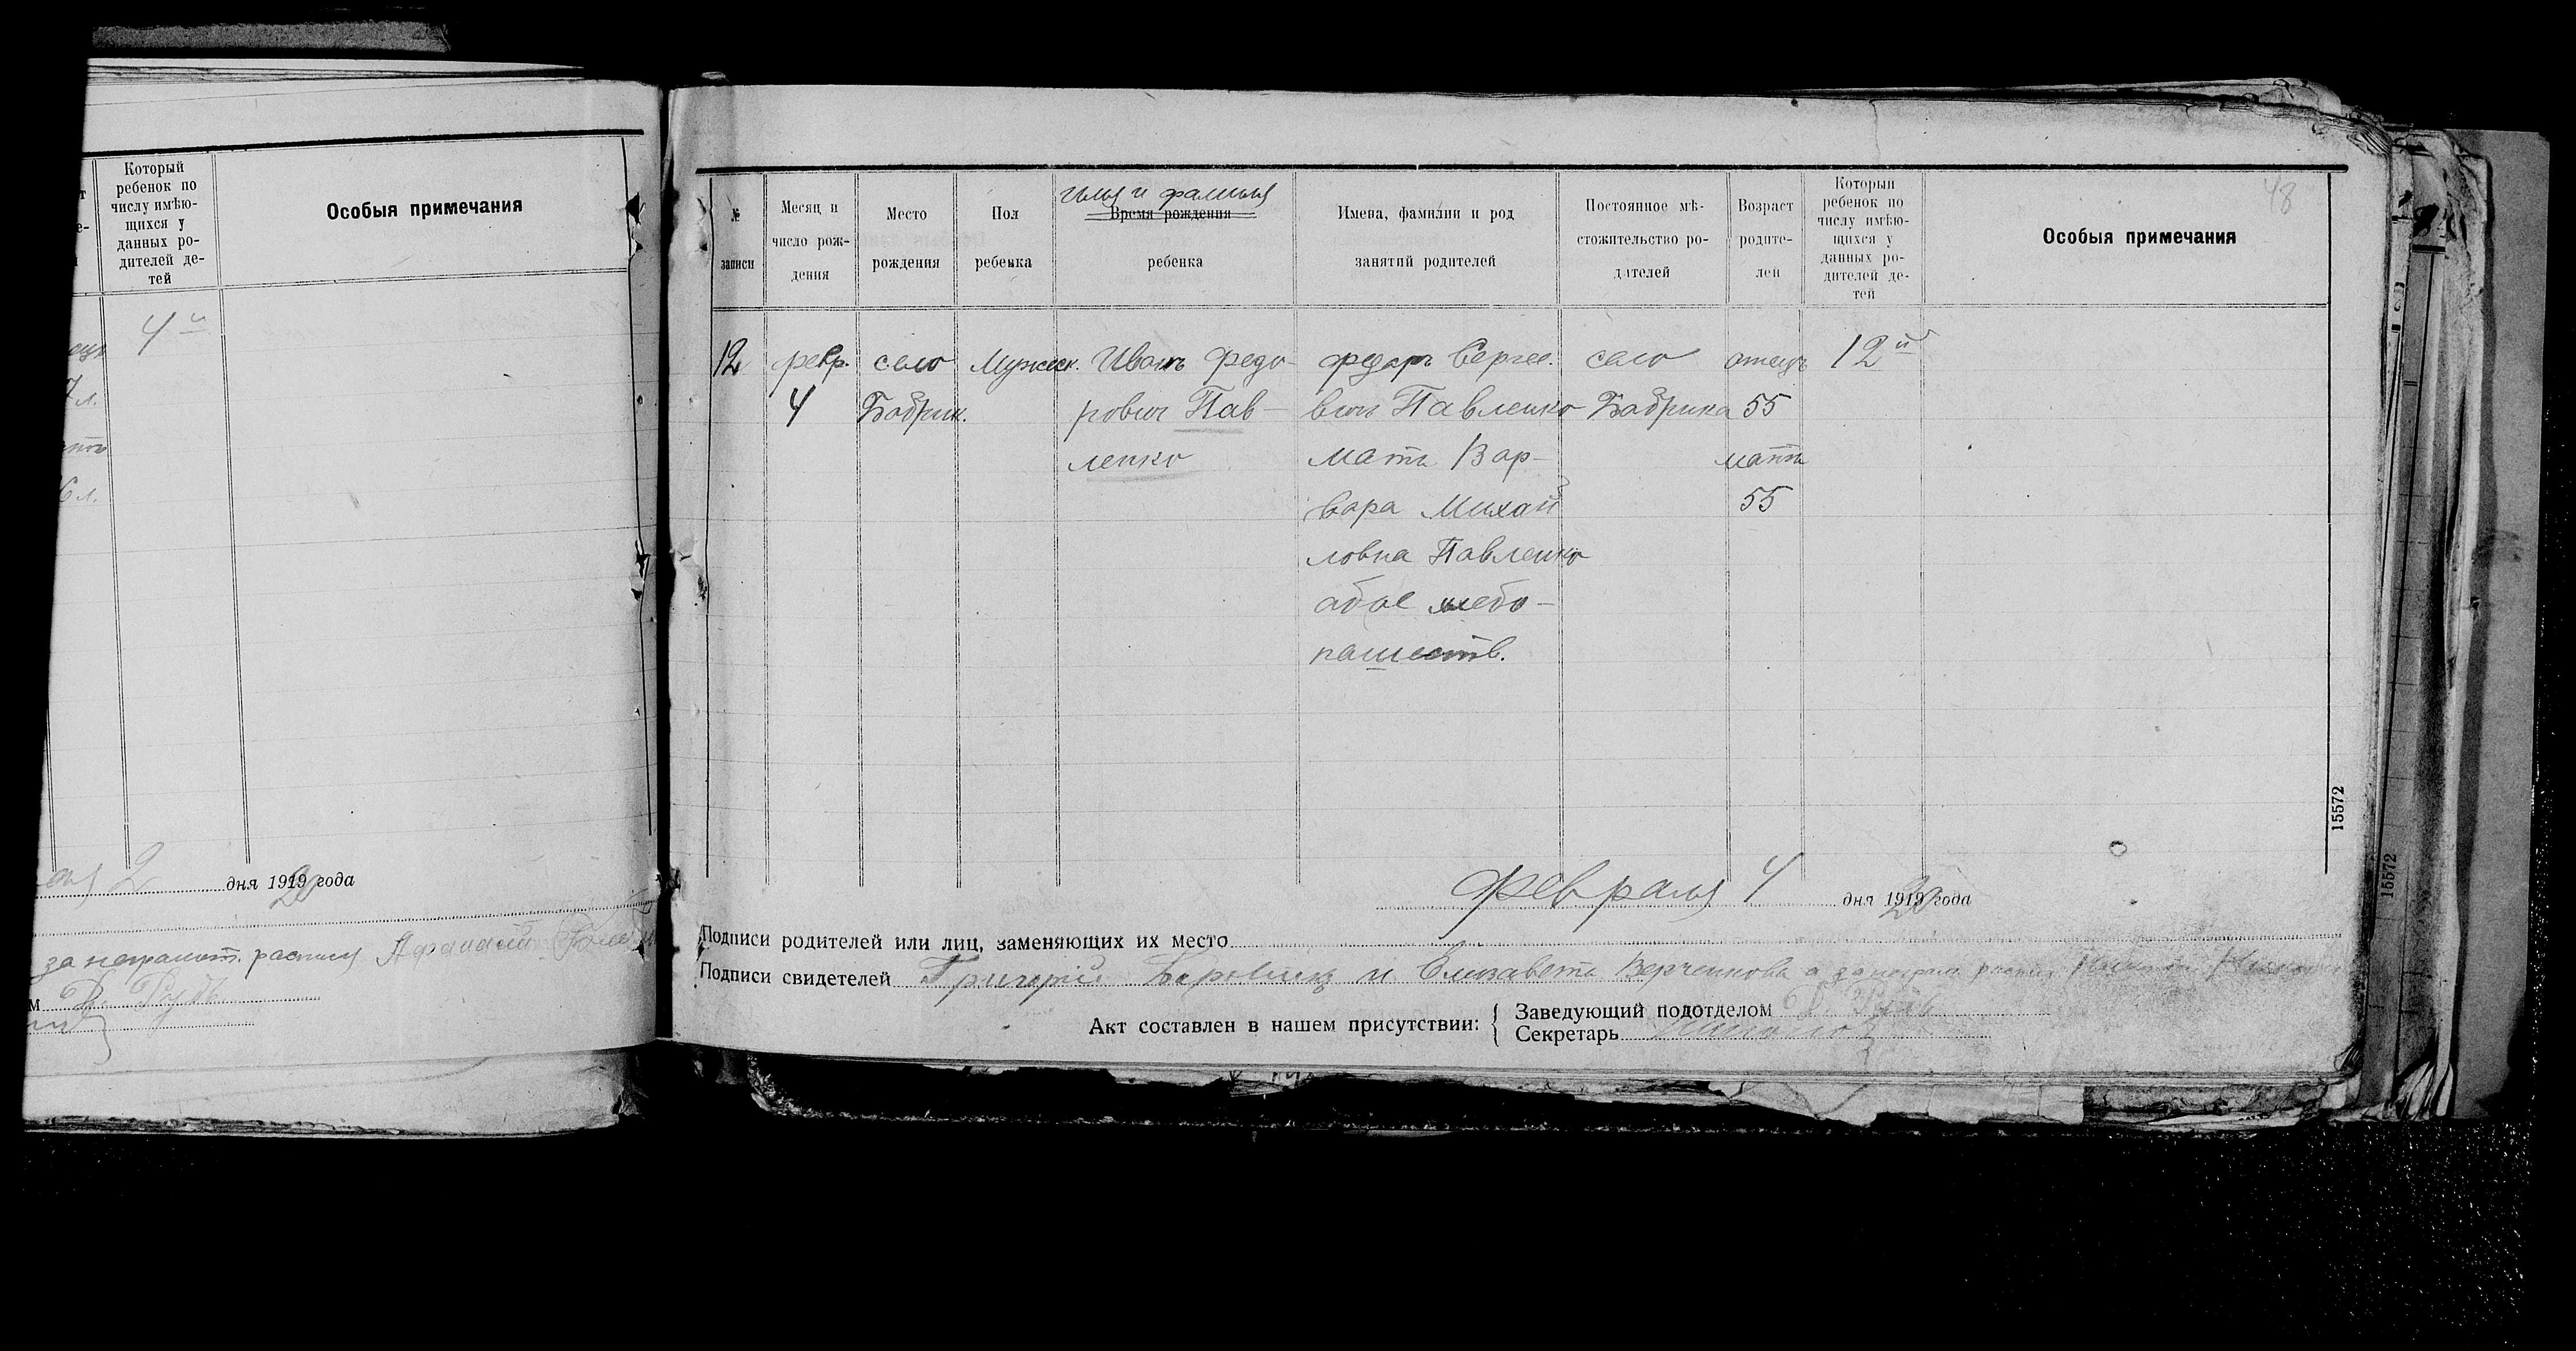 Который
ребенок по
числу имѣю-
щихся у
данных ро-
дителей де-
тей
Особыя примечания
4й
7 л.
6 л.
2 дня 1919 20 года
за неграмот. распися Афанасий
Р. Рудь
48
№
записи
Месяц и
число рож-
дения
Место
рождения
Пол
ребенка
имя и фамилия
Время рождения
ребенка
Имена, фамилии и род
занятий родителей
Постоянное мѣ-
стожительство ро-
дителей
Возраст
родите-
лей
Который
ребенок по
числу имѣю-
щихся у
данных ро-
дителей де-
тей
Особыя примечания
12
февр.
4
село
Бобрик.
Мужеск.
Иванъ Федо-
рович Пав-
ленко
Федоръ Сергее.
вичъ Павленко
мать Вар-
вара Михай
ловна Павленко
обое хлебо-
пашеств.
село
Бобрика
отецъ
55
мать
55
12й
15572
Февраля 4 дня 1919 20 года
Подписи родителей или лиц, заменяющих их место
Подписи свидетелей Григорій и Елизавета а за неграм распис
Акт составлен в нашем присутствии:
Заведующий подотделом
Секретарь
15572